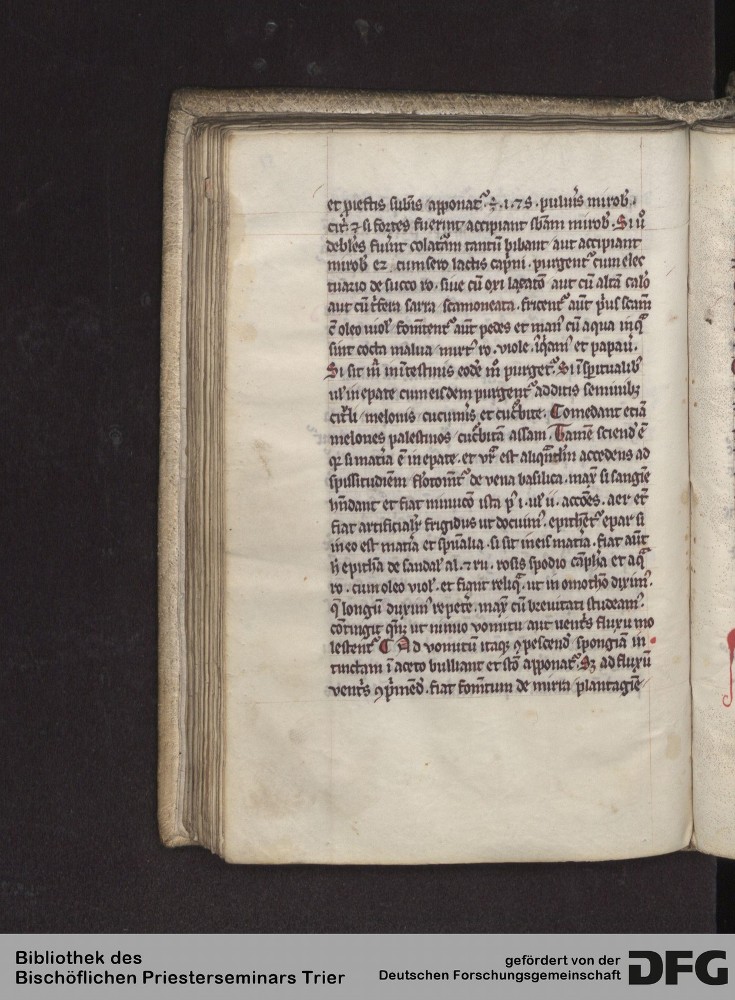 et ꝓiectis subtis apponatr ℥ .i. ⁊ s. pulu͛is mirob̛.
cit̛. ⁊ si fortes fuerint accipiant sb̅am mirob̛. Si u͛
debiles fu͛int colat͛am tantu̅ bibant aut accipiant
mirob̛ cum sero lactis cap͛ini. purgent᷑ cum elec
tuario de succo ro. siue cu̅ oxi laxato̅ aut cu̅ alt͛a calo̅
aut cu̅ t͛fera sarra scamoneata. fricent᷑ aut̅ p͛us
c̅ oleo uiol̛ fom̅tent᷑ aut̅ pedes et man᷒ cu̅ aqua in qͣ
sint cocta malua mirt᷑ ro. viole et papau͛.
Si sit m̅ in i̅testinis eode̅ m̊ purget᷑. Si i̅ spiritualib᷒
ul̛ in epate cum eisdem purgent᷑ additis seminibꝫ
cit͛lli melonis cucum͛is et cuc͛bite. Comedant etia̅
melones palestinos cuc͛bita̅ assam. Tame̅ sciend̅ e̅
qꝛ si mat͛ia e̅ in epate. et vr̅ est accedens ad
spissitudine̅ flotom̅t᷑ de vena basilica. max̅ si sangīe
hn̅dant et fiat minuc̅o ista p͛ .i. ul̛ .ii. acc̅oes. aer et̅
fiat artificialr̅ frigidus ut docuim᷒. epithe̅t᷑ epar si
in eo est mat͛ia et spu̅alia. si sit in eis mat͛ia. fiat aut̅
h̅ epith̅a de sandal̛ al̛. ⁊ ru. rosis spodio ca̅ph̅a et aqͣ
ro. cum oleo viol̛. et fiant reliqͣ. ut in omotho̅ dixim᷒.
q̅ longu̅ duxim᷒ repet͛e. max̅ cu̅ breuitati studeam᷒.
co̅tingit qn̅qꝫ ut nimio vomitu aut uent͛s fluxu mo
lestent᷑ ¶ Ad vomitu̅ itaqꝫ ꝯpescend̅ spongia̅ in
tinctam i̅ aceto bulliant et sto̅ apponat᷑. Sꝫ ad fluxu̅
vent͛s ꝯp͛me̅d̅. fiat fom̅tum de mirta plantagīe
Bibliothek des
Bischöflichen Priesterseminars Trier
gefördert von der
Deutschen Forschungsgemeinschaft
DFG